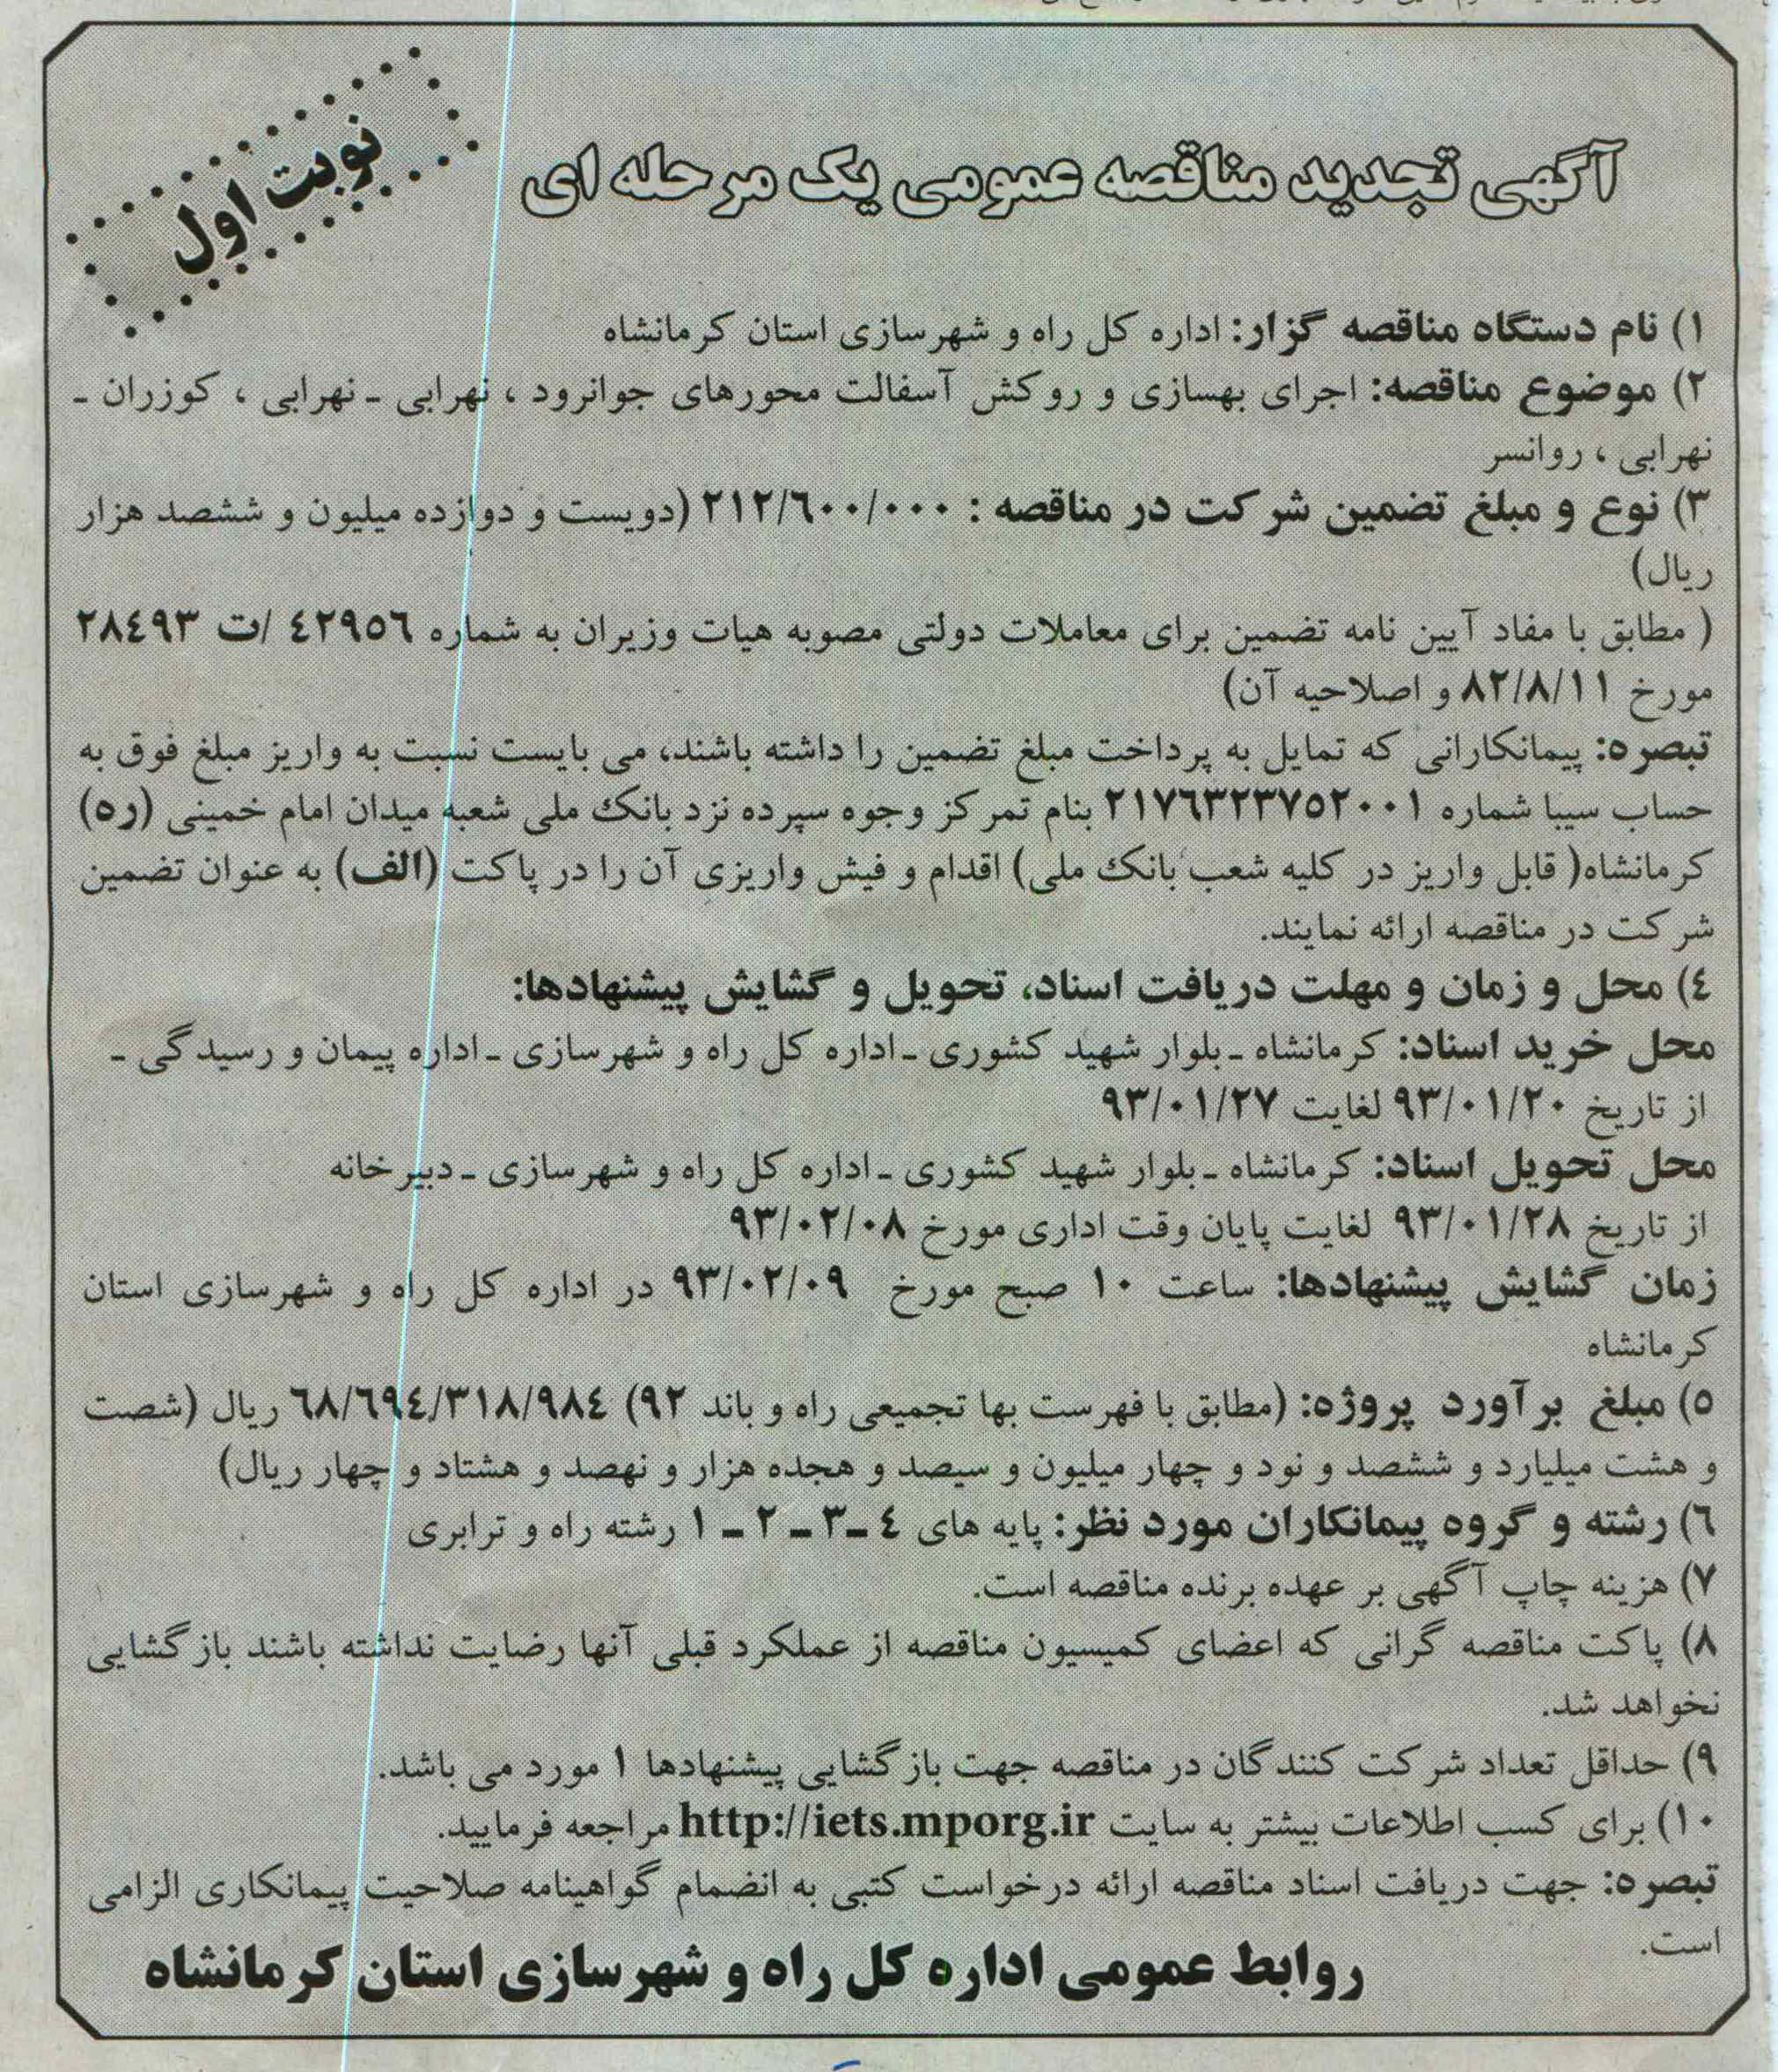 آگهی تجدید مناقصه عمومی یک مرحله ای
نوبت اول
۱) نام دستگاه مناقصه گزار: اداره کل راه و شهرسازی استان کرمانشاه
۲) موضوع مناقصه: اجرای بهسازی و روکش آسفالت محورهای جوانرود ، نهرابی ـ نهرابی ، کوزران ـ
نهرابی ، روانسر
۳) نوع و مبلغ تضمین شرکت در مناقصه : ۲۱۲/۶۰۰/۰۰۰ (دویست و دوازده میلیون و ششصد هزار
ریال)
( مطابق با مفاد آیین نامه تضمین برای معاملات دولتی مصوبه هیات وزیران به شماره ۴۲۹۵۶ /ت ۲۸۴۹۳
مورخ ۸۲/۸/۱۱ و اصلاحیه آن)
تبصره: پیمانکارانی که تمایل به پرداخت مبلغ تضمین را داشته باشند، می بایست نسبت به واریز مبلغ فوق به
حساب سیبا شماره ۲۱۷۶۳۲۳۷۵۲۰۰۱ بنام تمرکز وجوه سپرده نزد بانک ملی شعبه میدان امام خمینی (ره)
کرمانشاه( قابل واریز در کلیه شعب بانک ملی) اقدام و فیش واریزی آن را در پاکت (الف) به عنوان تضمین
شرکت در مناقصه ارائه نمایند.
۴) محل و زمان و مهلت دریافت اسناد، تحویل و گشایش پیشنهادها:
محل خرید اسناد: کرمانشاه ـ بلوار شهید کشوری ـ اداره کل راه و شهرسازی ـ اداره پیمان و رسیدگی ـ
از تاریخ ۹۳/۰۱/۲۰ لغایت ۹۳/۰۱/۲۷
محل تحویل اسناد: کرمانشاه ـ بلوار شهید کشوری ـ اداره کل راه و شهرسازی ـ دبیرخانه
از تاریخ ۹۳/۰۱/۲۸ لغایت پایان وقت اداری مورخ ۹۳/۰۲/۰۸
زمان گشایش پیشنهادها: ساعت ۱۰ صبح مورخ ۹۳/۰۲/۰۹ در اداره کل راه و شهرسازی استان
کرمانشاه
۵) مبلغ برآورد پروژه: (مطابق با فهرست بها تجمیعی راه و باند ۹۲) ۶۸/۶۹۴/۳۱۸/۹۸۴ ریال (شصت
و هشت میلیارد و ششصد و نود و چهار میلیون و سیصد و هجده هزار و نهصد و هشتاد و چهار ریال)
۶) رشته و گروه پیمانکاران مورد نظر: پایه های ۴ ـ ۳ ـ ۲ ـ ۱ رشته راه و ترابری
۷) هزینه چاپ آگهی بر عهده برنده مناقصه است.
۸) پاکت مناقصه گرانی که اعضای کمیسیون مناقصه از عملکرد قبلی آنها رضایت نداشته باشند بازگشایی
نخواهد شد.
۹) حداقل تعداد شرکت کنندگان در مناقصه جهت بازگشایی پیشنهادها ۱ مورد می باشد.
۱۰) برای کسب اطلاعات بیشتر به سایت http://iets.mporg.ir مراجعه فرمایید.
تبصره: جهت دریافت اسناد مناقصه ارائه درخواست کتبی به انضمام گواهینامه صلاحیت پیمانکاری الزامی
است.
روابط عمومی اداره کل راه و شهرسازی استان کرمانشاه